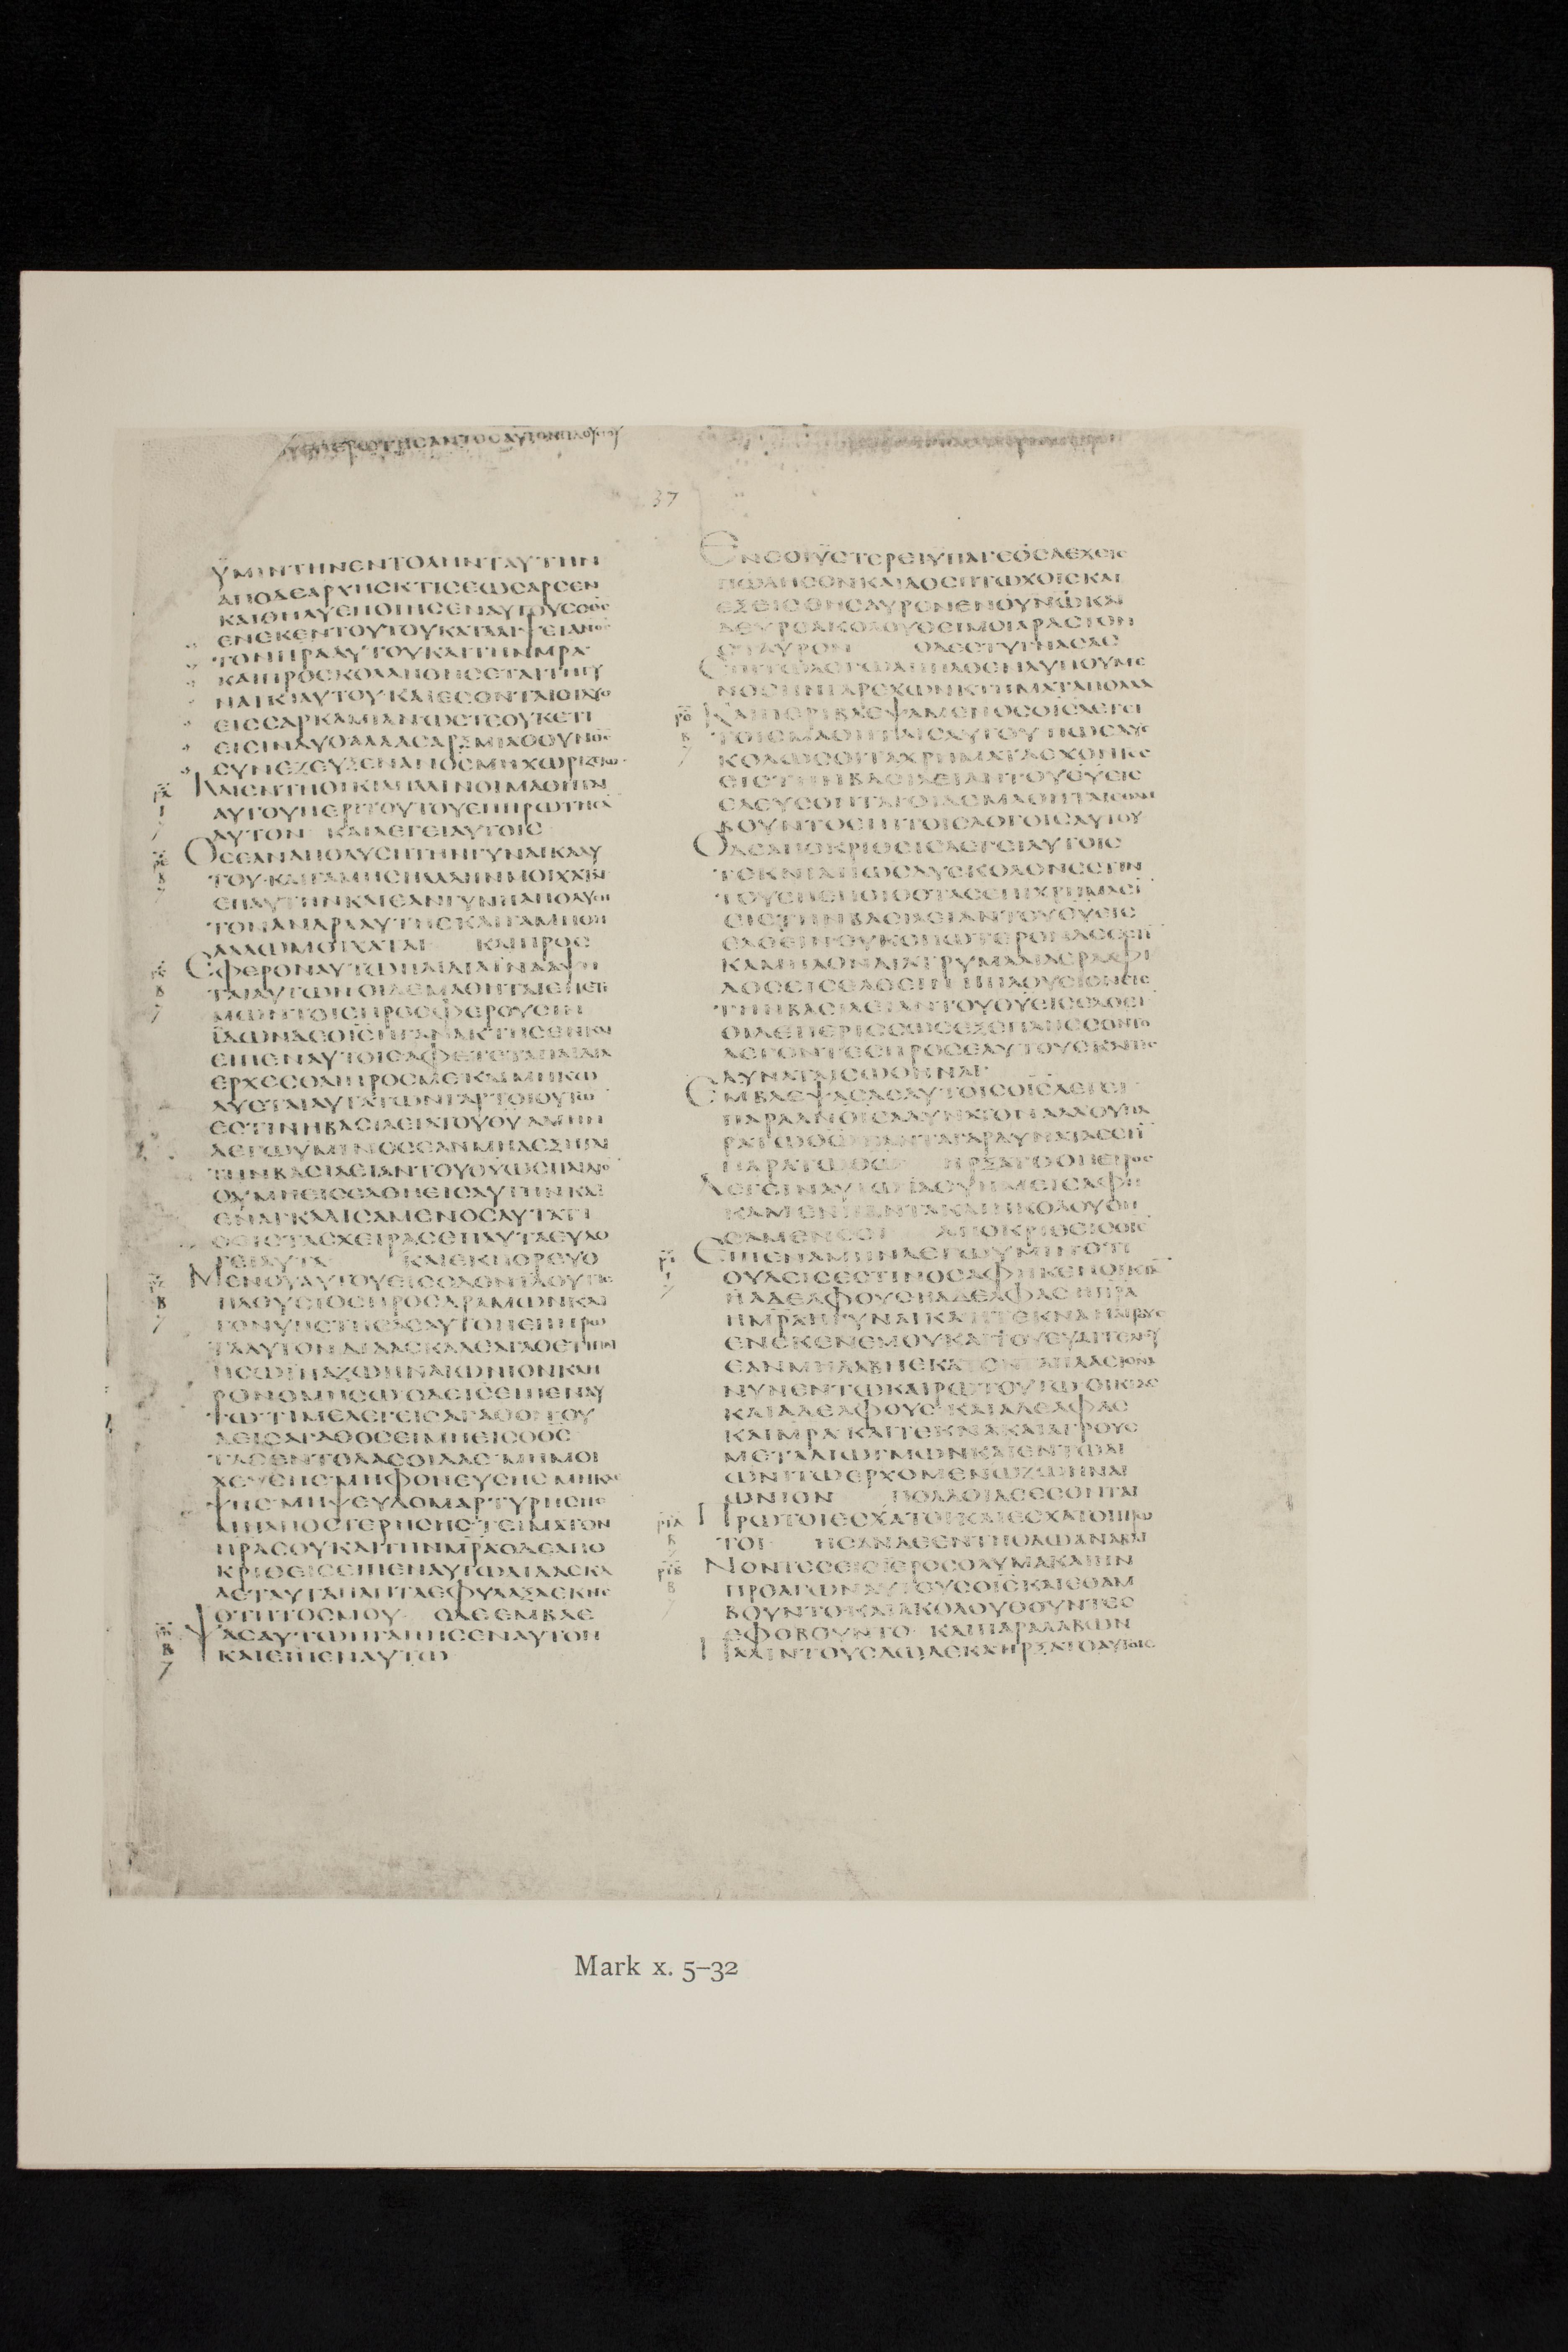 37
ΫΜΙΝΤΗΝΕΝΤΟΛΗΝΤΑΥΤΗΝ
ΑΠΟΔΕΑΡΧΗCΚΤΙCΕΩCΑΡCΕΝ
ΚΑΙΘΗΛΥΕΠΟΙΗCΕΝΑΥΤΟΥCΟΘC
ΕΝΕΚΕΝΤΟΥΤΟΥΚΑΤΑΛΙΨΕΙΑΝΟC
ΤΟΝΠΡΑΑΥΤΟΥΚΑΙΤΗΝΜΡΑ
ΚΑΙΠΡΟCΚΟΛΛΗΘΗCΕΤΑΙΤΗΓΥ
ΝΑΙΚΙΑΥΤΟΥΚΑΙΕCΟΝΤΑΙΟΙΔΥΟ
ΕΙCCΑΡΚΑΜΙΑΝΩCΤΕΟΥΚΕΤΙ
ΕΙCΙΝΔΥΟΑΛΛΑCΑΡΞΜΙΑΟΟΥΝΟΘC
CΥΝΕΖΕΥΞΕΝΑΝΟCΜΗΧΩΡΙΖΕΤΩ
ΚΑΙΕΝΤΗΟΙΚΙΑΠΑΛΙΝΟΙΜΑΘΗΤΑΙ
ΑΥΤΟΥΠΕΡΙΤΟΥΤΟΥΕΠΗΡΩΤΗCΑ
ΑΥΤΟΝ ΚΑΙΛΕΓΕΙΑΥΤΟΙC
ΟCΕΑΝΑΠΟΛΥCΗΤΗΝΓΥΝΑΙΚΑΑΥ
ΤΟΥ·ΚΑΙΓΑΜΗCΗΑΛΛΗΝΜΟΙΧΑΤΑΙ
ΕΠΑΥΤΗΝΚΑΙΕΑΝΓΥΝΗΑΠΟΛΥCΗ
ΤΟΝΑΝΔΡΑΑΥΤΗCΚΑΙΓΑΜΗΘΗ
ΑΛΛΩΜΟΙΧΑΤΑΙ ΚΑΙΠΡΟC
ΕΦΕΡΟΝΑΥΤΩΠΑΙΔΙΑΪΝΑΑΨΗ
ΤΑΙΑΥΤΩΝΟΙΔΕΜΑΘΗΤΑΙΕΠΕΤΙ
ΜΩΝΤΟΙCΠΡΟCΦΕΡΟΥCΙΝ
ΪΔΩΝΔΕΟΙCΗΓΑΝΑΚΤΗCΕΝΚΑΙ
ΕΙΠΕΝΑΥΤΟΙCΑΦΕΤΕΤΑΠΑΙΔΙΑ
ΕΡΧΕCΘΑΙΠΡΟCΜΕΚΑΙΜΗΚΩ
ΛΥΕΤΑΙΑΥΤΑΤΩΝΓΑΡΤΟΙΟΥΤΩ
ΕCΤΙΝΗΒΑCΙΛΕΙΑΤΟΥΘΥ ΑΜΗΝ
ΛΕΓΩΫΜΙΝΟCΕΑΝΜΗΔΕΞΗΤΑΙ
ΤΗΝΒΑCΙΛΕΙΑΝΤΟΥΘΥΩCΠΑΙΔΙΟ
ΟΥΜΗΕΙCΕΛΘΗΕΙCΑΥΤΗΝΚΑΙ
ΕΝΑΓΚΑΛΙCΑΜΕΝΟCΑΥΤΑΤΙ
ΘΕΙCΤΑCΧΕΙΡΑCΕΠΑΥΤΑΕΥΛΟ
ΓΕΙΑΥΤΑ ΚΑΙΕΚΠΟΡΕΥΟ
ΜΕΝΟΥΑΥΤΟΥΕΙCΟΔΟΝΪΔΟΥΤΙC
ΠΛΟΥCΙΟCΠΡΟCΔΡΑΜΩΝΚΑΙ
ΓΟΝΥΠΕΤΗCΑCΑΥΤΟΝΕΠΗΡΩ
ΤΑΑΥΤΟΝΔΙΔΑCΚΑΛΕΑΓΑΘΕΤΙΠΟΙ
ΗCΩΪΝΑΖΩΗΝΑΙΩΝΙΟΝΚΛΗ
ΡΟΝΟΜΗCΩ ΟΔΕΙCΕΙΠΕΝΑΥ
ΤΩΤΙΜΕΛΕΓΕΙCΑΓΑΘΟΝΟΥ
ΔΕΙCΑΓΑΘΟCΕΙΜΗΕΙCΟΘC
ΤΑCΕΝΤΟΛΑCΟΙΔΑC ΜΗΜΟΙ
ΧΕΥCΗCΜΗΦΟΝΕΥCΗC ΜΗΚΛΕ
ΨΗC·ΜΗΨΕΥΔΟΜΑΡΤΥΡΗCΗC
ΜΗΑΠΟCΤΕΡΗCΗC·ΤΕΙΜΑΤΟΝ
ΠΡΑCΟΥΚΑΙΤΗΝΜΡΑΟΔΕΑΠΟ
ΚΡΙΘΕΙCΕΙΠΕΝΑΥΤΩΔΙΔΑCΚΑ
ΛΕΤΑΥΤΑΠΑΝΤΑΕΦΥΛΑΞΑΕΚΝΕ
ΟΤΗΤΟCΜΟΥ· ΟΔΕΕΜΒΛΕ
ΨΑCΑΥΤΩΗΓΑΠΗCΕΝΑΥΤΟΝ
ΚΑΙΕΙΠΕΝΑΥΤΩ
ΕΝCΟΙΫCΤΕΡΕΙΫΠΑΓΕΟCΑΕΧΕΙC
ΠΩΛΗCΟΝΚΑΙΔΟCΠΤΩΧΟΙCΚΑΙ
ΕΞΕΙCΘΗCΑΥΡΟΝΕΝΟΥΝΩΚΑΙ
ΔΕΥΡΟΑΚΟΛΟΥΘΕΙΜΟΙΑΡΑCΤΟΝ
CΤΑΥΡΟΝ ΟΔΕCΤΥΓΝΑCΑC
ΕΠΙΤΩΛΟΓΩΑΠΗΛΘΕΝΛΥΠΟΥΜΕ
ΝΟCΗΝΓΑΡΕΧΩΝΚΤΗΜΑΤΑΠΟΛΛΑ
ΚΑΙΠΕΡΙΒΛΕΨΑΜΕΝΟCΟΙCΛΕΓΕΙ
ΤΟΙCΜΑΘΗΤΑΙCΑΥΤΟΥ ΠΩCΔΥC
ΚΟΛΩCΟΙΤΑΧΡΗΜΑΤΑΕΧΟΝΤΕC
ΕΙCΤΗΝΒΑCΙΛΕΙΑΝΤΟΥΘΥΕΙC
ΕΛΕΥCΟΝΤΑΙΟΙΔΕΜΑΘΗΤΑΙΕΘΑΜ
ΒΟΥΝΤΟΕΠΙΤΟΙCΛΟΓΟΙCΑΥΤΟΥ
ΟΔΕΑΠΟΚΡΙΘΕΙCΛΕΓΕΙΑΥΤΟΙC
ΤΕΚΝΙΑΠΩCΔΥCΚΟΛΟΝΕCΤΙΝ
ΤΟΥCΠΕΠΟΙΘΟΤΑCΕΠΙΧΡΗΜΑCΙ
ΕΙCΤΗΝΒΑCΙΛΕΙΑΝΤΟΥΘΥΕΙC
ΕΛΘΕΙΝΕΥΚΟΠΩΤΕΡΟΝΔΕΕCΤΙ
ΚΑΜΗΛΟΝΔΙΑΤΡΥΜΑΛΙΑCΡΑΦΙ
ΔΟCΕΙCΕΛΘΕΙΝΗΠΛΟΥCΙΟΝΕΙC
ΤΗΝΒΑCΙΛΕΙΑΝΤΟΥΘΥΕΙCΕΛΘΕΙ
ΟΙΔΕΠΕΡΙCCΩCΕΞΕΠΛΗCCΟΝΤΟ
ΛΕΓΟΝΤΕCΠΡΟCΕΑΥΤΟΥCΚΑΙΤΙC
ΔΥΝΑΤΑΙCΩΘΗΝΑΙ·
ΕΜΒΛΕΨΑCΔΕΑΥΤΟΙCΟΙCΛΕΓΕΙ
ΠΑΡΑΑΝΟΙCΑΔΥΝΑΤΟΝΑΛΛΟΥΠΑ
ΡΑΤΩΘΩΠΑΝΤΑΓΑΡΔΥΝΑΤΑΕCΤΙ
ΠΑΡΑΤΩΘΩ ΗΡΞΑΤΟΟΠΕΤΡΟC
ΛΕΓΕΙΝΑΥΤΩΪΔΟΥΗΜΕΙCΑΦΗ
ΚΑΜΕΝΠΑΝΤΑΚΑΙΗΚΟΛΟΥΘΗ
CΑΜΕΝCΟΙ ΑΠΟΚΡΙΘΕΙCΟΙC
ΕΙΠΕΝΑΜΗΝΛΕΓΩΫΜΙΝΟΤΙ
ΟΥΔΕΙCΕCΤΙΝΟCΑΦΗΚΕΝΟΙΚΙΑ
ΗΑΔΕΛΦΟΥCΗΑΔΕΛΦΑC ΗΠΡΑ
ΗΜΡΑΗΓΥΝΑΙΚΑΗΤΕΚΝΑΗΑΓΡΟΥC
ΕΝΕΚΕΝΕΜΟΥΚΑΙΤΟΥΕΥΑΓΓΕΛΙΟΥ
ΕΑΝΜΗΛΑΒΗΕΚΑΤΟΝΤΑΠΛΑCΙΟΝΑ
ΝΥΝΕΝΤΩΚΑΙΡΩΤΟΥΤΩ ΟΙΚΙΑC
ΚΑΙΑΔΕΛΦΟΥC ΚΑΙΑΔΕΛΦΑC
ΚΑΙΜΡΑ ΚΑΙΤΕΚΝΑΚΑΙΑΓΡΟΥC
ΜΕΤΑΔΙΩΓΜΩΝΚΑΙΕΝΤΩΑΙ
ΩΝΙΤΩΕΡΧΟΜΕΝΩΖΩΗΝΑΙ
ΩΝΙΟΝ ΠΟΛΛΟΙΔΕΕCΟΝΤΑΙ
ΠΡΩΤΟΙΕCΧΑΤΟΙΚΑΙΕCΧΑΤΟΙΠΡΩ
ΤΟΙ· ΗCΑΝΔΕΕΝΤΗΟΔΩΑΝΑΒΑΙ
ΝΟΝΤΕCΕΙCΪΕΡΟCΟΛΥΜΑΚΑΙΗΝ
ΠΡΟΑΓΩΝΑΥΤΟΥCΟΙCΚΑΙΕΘΑΜ
ΒΟΥΝΤΟ·ΚΑΙΑΚΟΛΟΥΘΟΥΝΤΕC
ΕΦΟΒΟΥΝΤΟ· ΚΑΙΠΑΡΑΛΑΒΩΝ
ΠΑΛΙΝΤΟΥCΔΩΔΕΚΑΗΡΞΑΤΟΑΥΤΟΙC
Mark x. 5–32